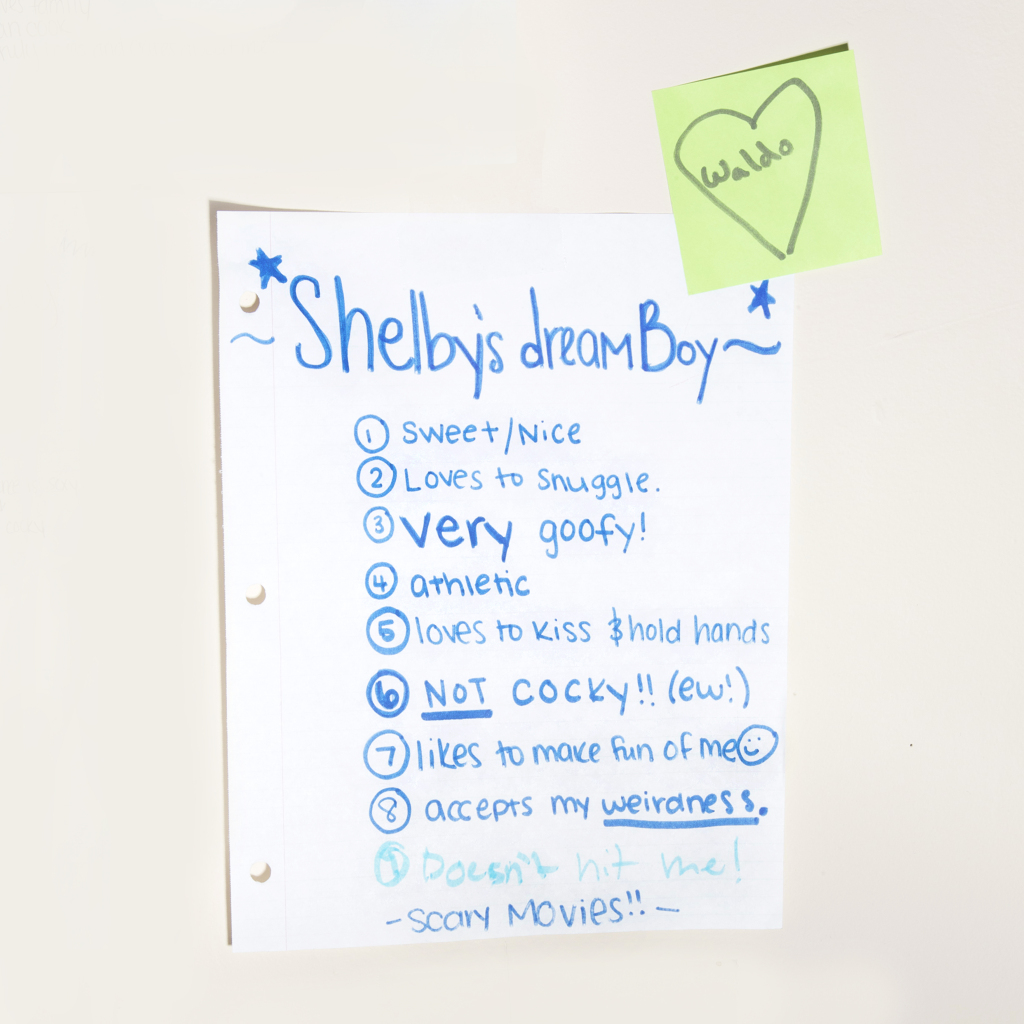 Waldo
Shelby's dream Boy
① sweet/Nice
② Loves to snuggle.
③ very goofy!
④ athletic
⑤ loves to kiss & hold hands
⑥ NOT COCKY!! (ew!)
⑦ likes to make fun of me☺
⑧ accepts my weirdness.
⑨ Doesn't hit me!
-scary Movies!!-